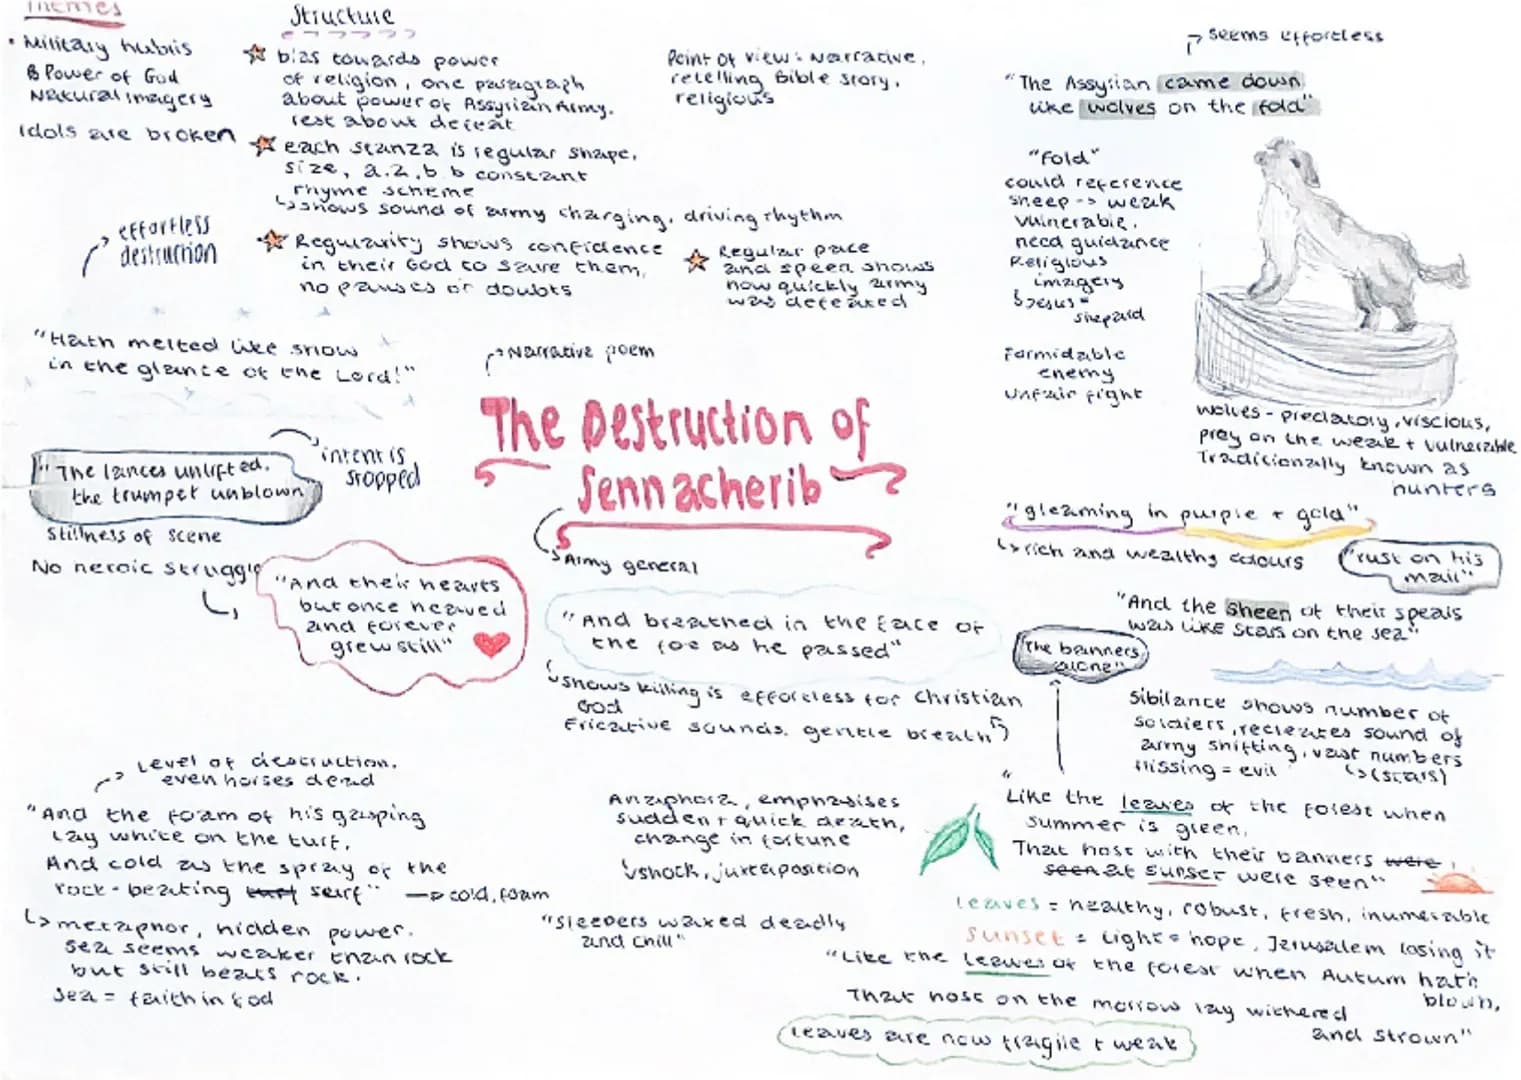 Themes
• Military hubris
& Power of God
Natural imagery
Idols are broken
Structure
bias towards power
of religion, one paragraph
about power of Assyrian Army,
rest about defeat
each stanza is regular shape,
size, a.a,b.b constant
rhyme scheme
↳ shows sound of army charging, driving rhythm
Regularity shows confidence
in their God to save them,
no pauses or doubts
Regular pace
and speed shows
how quickly army
was defeated
Point of view: Narrative,
retelling Bible story,
religious
seems effortless
"The Assyrian came down
like wolves on the fold"
"Fold"
could reference
sheep -> weak
vulnerable,
need guidance
Religious
imagery
↳ Jesus =
shepard
Formidable
enemy
unfair fight
wolves - predatory, viscious,
prey on the weak + vulnerable
Traditionally known as
hunters
effortless
destruction
"Hath melted like snow
in the glance of the Lord!"
"The lances unlifted,
the trumpet unblown
intent is
stopped
Stillness of scene
No heroic struggle
"And their hearts
but once heaved
and forever
grew still"
Narrative poem
The Destruction of
Sennacherib
Army general
"And breathed in the face of
the foe as he passed"
↳ shows killing is effortless for Christian
God
Fricative sounds, gentle breath
"gleaming in purple + gold"
↳ rich and wealthy colours
"rust on his
mail"
"And the sheen of their spears
was like stars on the sea"
"The banners
alone"
Sibilance shows number of
soldiers, recreates sound of
army shifting, vast numbers
Hissing = evil ↳ (stars)
Level of destruction,
even horses dead
"And the foam of his gasping
lay white on the turf,
And cold as the spray of the
rock-beating turf surf" → cold, foam
↳ metaphor, hidden power.
Sea seems weaker than rock
but still beats rock.
Sea = faith in God
Anaphora, emphasises
sudden + quick death,
change in fortune
↳ shock, juxtaposition
"Sleepers waxed deadly
and chill"
"Like the leaves of the forest when
summer is green,
That host with their banners were
seen at sunset were seen"
leaves = healthy, robust, fresh, inumerable
sunset = light = hope, Jerusalem losing it
"Like the leaves of the forest when Autum hath
blown,
That host on the morrow lay withered
and strown"
leaves are now fragile + weak